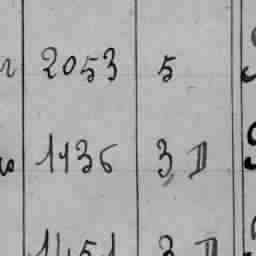 2053 5
1436 3 II
1451 3 II